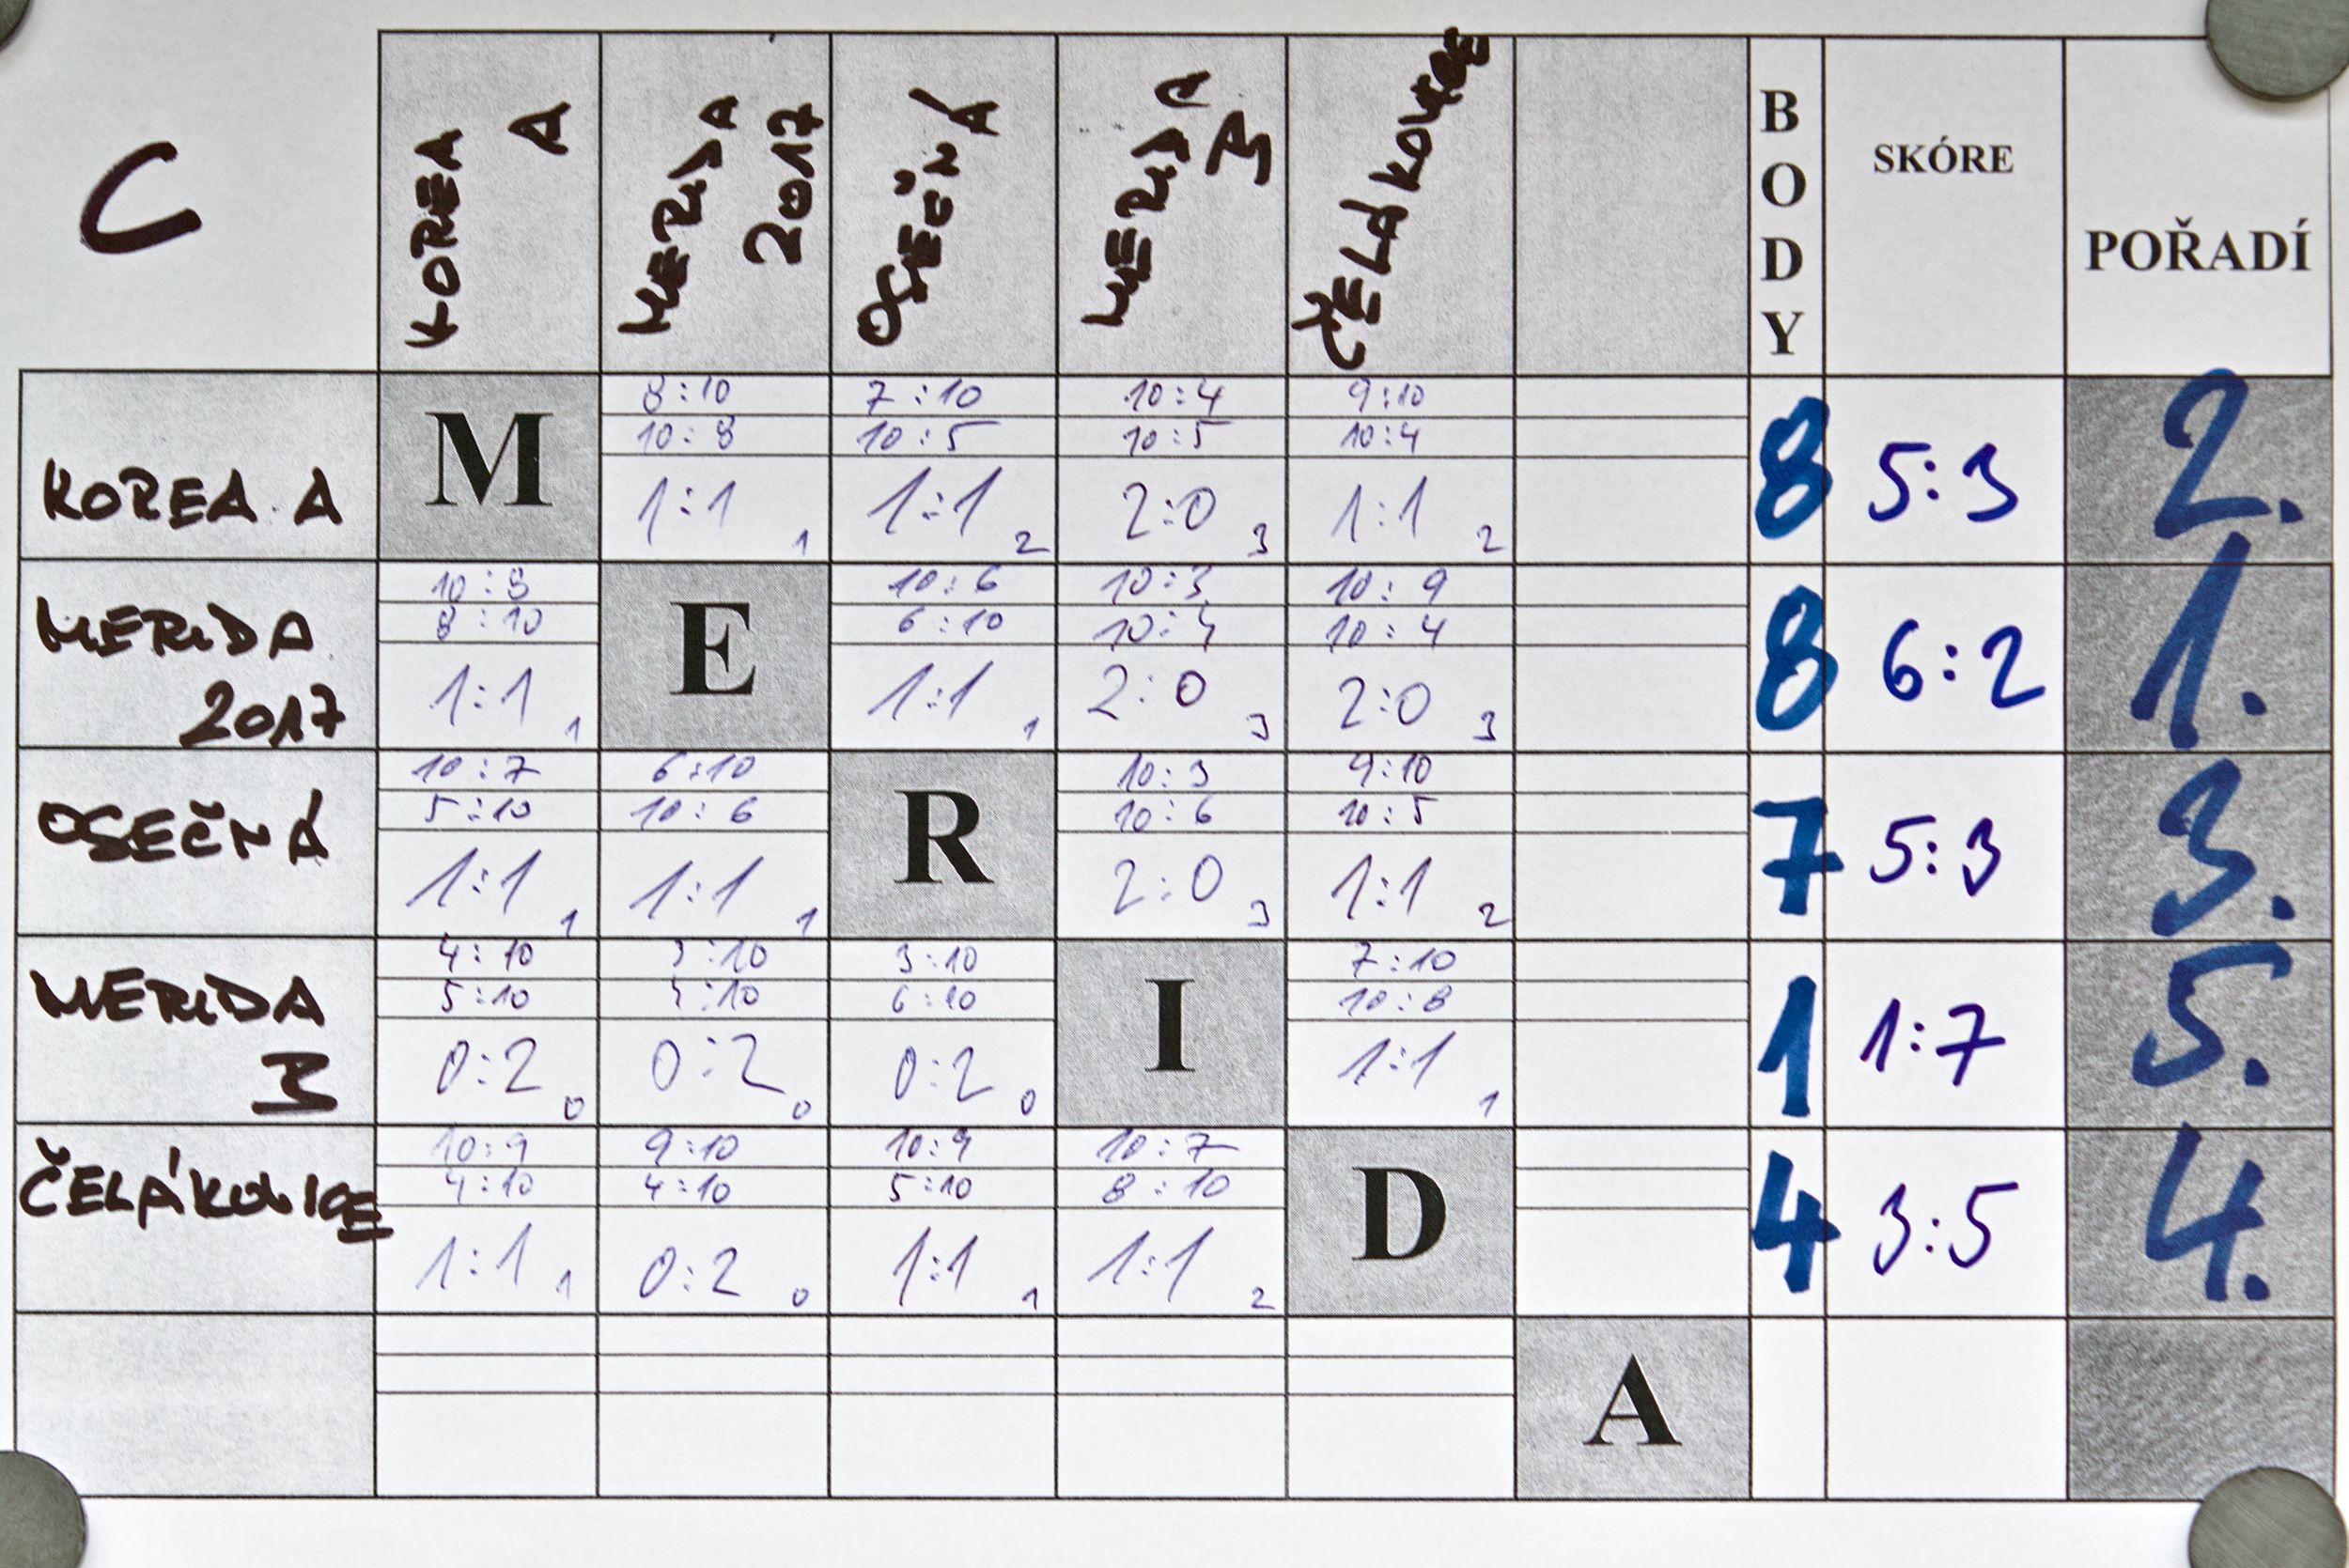 C
KOREA A
MERIDA 2017
OSEČNÁ
MERIDA B
ČELÁKOVICE
BODY
SKÓRE
POŘADÍ
KOREA A
M
8:10
10:8
1:1 1
7:10
10:5
1:1 2
10:4
10:5
2:0 3
9:10
10:4
1:1 2
8
5:3
2.
MERIDA
2017
10:8
8:10
1:1 1
E
10:6
6:10
1:1 1
10:3
10:4
2:0 3
10:9
10:4
2:0 3
8
6:2
1.
OSEČNÁ
10:7
5:10
1:1 1
6:10
10:6
1:1 1
R
10:3
10:6
2:0 3
9:10
10:5
1:1 2
7
5:3
3.
MERIDA
B
4:10
5:10
0:2 0
3:10
0:2 0
3:10
6:10
0:2 0
I
7:10
10:8
1:1 1
1
1:7
5.
ČELÁKOVICE
10:9
4:10
1:1 1
9:10
4:10
0:2 0
10:9
5:10
1:1 1
10:7
8:10
1:1 2
D
4
3:5
4.
A